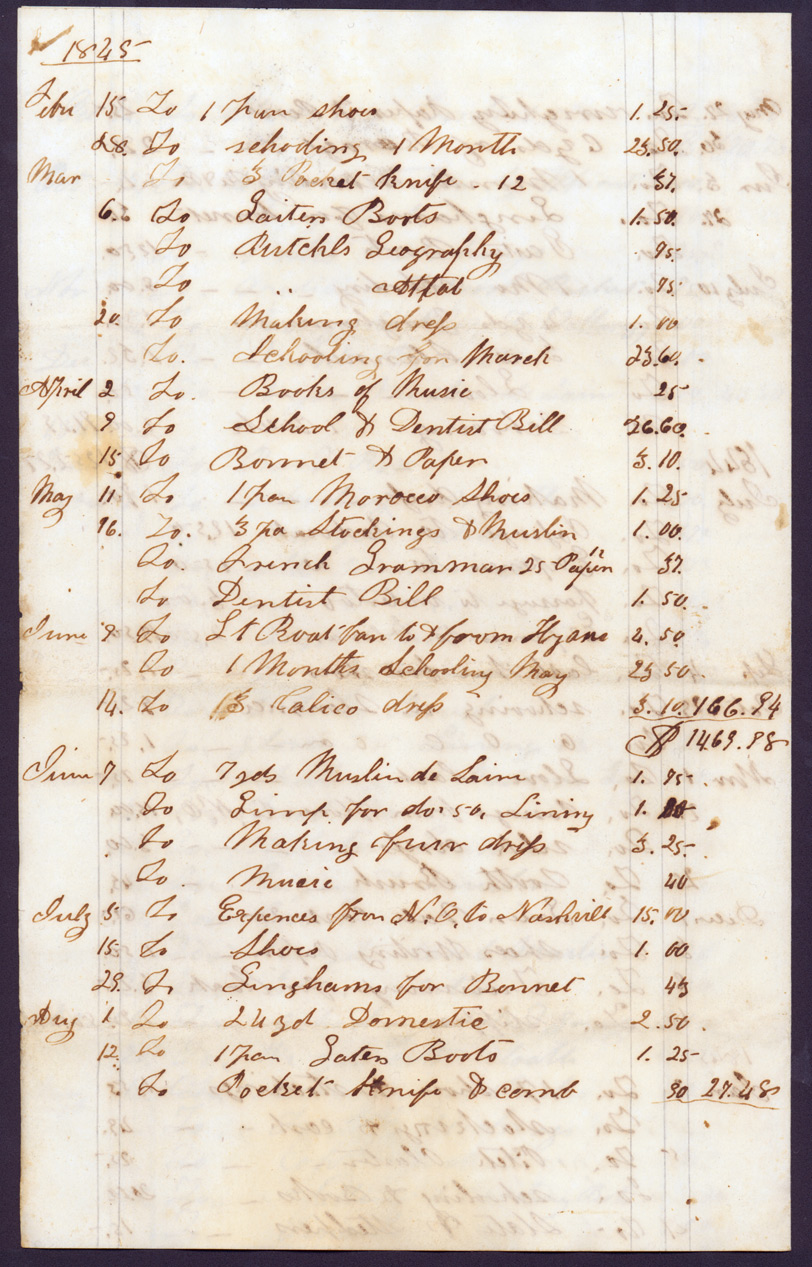 1845
Febu 15 To 1 Pair shoes 1. 25
28. To schooling 1 Month 23. 50.
Mar To 3 Pocket Knife . 12 37.
6. To Gaiters Boots 1. 50.
To Geography 75.
To " Atlas 75.
20. To Making dress 1. 00
To. Schooling for March 23.60.
April 2 To. Books of Music 25
9 To School & Dentist Bill 26.60.
15 To Bonnet & Paper 3. 10.
May 11 To 1 pair Morocco Shoes 1. 25
16. To. 3 pa Stockings & Muslin 1. 00.
To. French Grammar 25 Paper 12 37.
To Dentist Bill 1. 50.
June To St Boat fare to & from 2. 50
To 1 Months Schooling May 23 50.
14. To Calico dress 3. 10. 166.94
$ 1469.98
June 7 To 7 yds Muslin de Laine 1. 75.
To Gimp for do. 50, Lining 1.
To Making dress 3. 25.
To. Music 40
July 5 To Expences from N. O. to Nashville 15. 00
15. To Shoes 1. 00
29. To Ginghams for Bonnet 43
Aug 1. To yd Domestic 2. 50.
12. To 1 pair Gaters Boots 1. 25
To Pocket Knife & comb 30 27.48